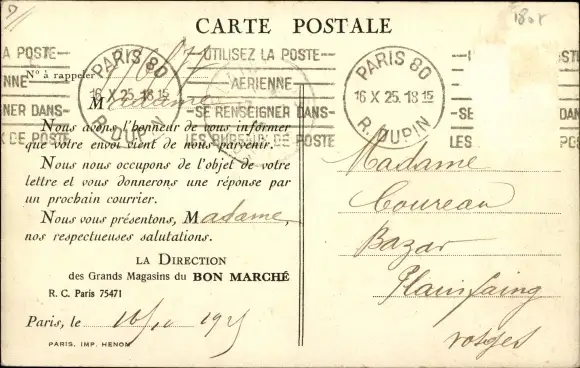 CARTE POSTALE
18.05
A POSTE—
PARIS 80
16 X 25. 18 15
R. DUPIN
UTILISEZ LA POSTE—
AERIENNE
—SE RENSEIGNER DANS—
LES BUREAUX DE POSTE
PARIS 80
16 X 25. 18 15
R. DUPIN
ENNE
GNER DANS
X DE POSTE
—SE
LES
N° à rappeler
Madame
Nous avons l'honneur de vous informer
que votre envoi vient de nous parvenir.
Nous nous occupons de l'objet de votre
lettre et vous donnerons une réponse par
un prochain courrier.
Nous vous présentons, Madame,
nos respectueuses salutations.
LA DIRECTION
des Grands Magasins du BON MARCHÉ
R. C. Paris 75471
Paris, le 16/10 1925
PARIS. IMP. HENON
Madame
Coureau
Bazar
Plainfaing
Vosges